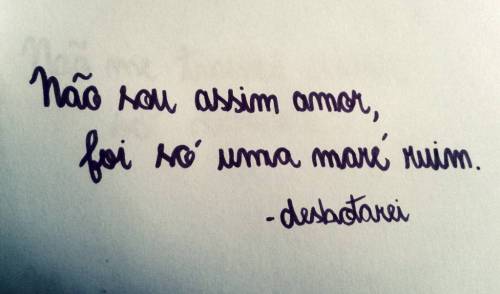 Não sou assim amor,
foi só uma maré ruim.
-desbotarei